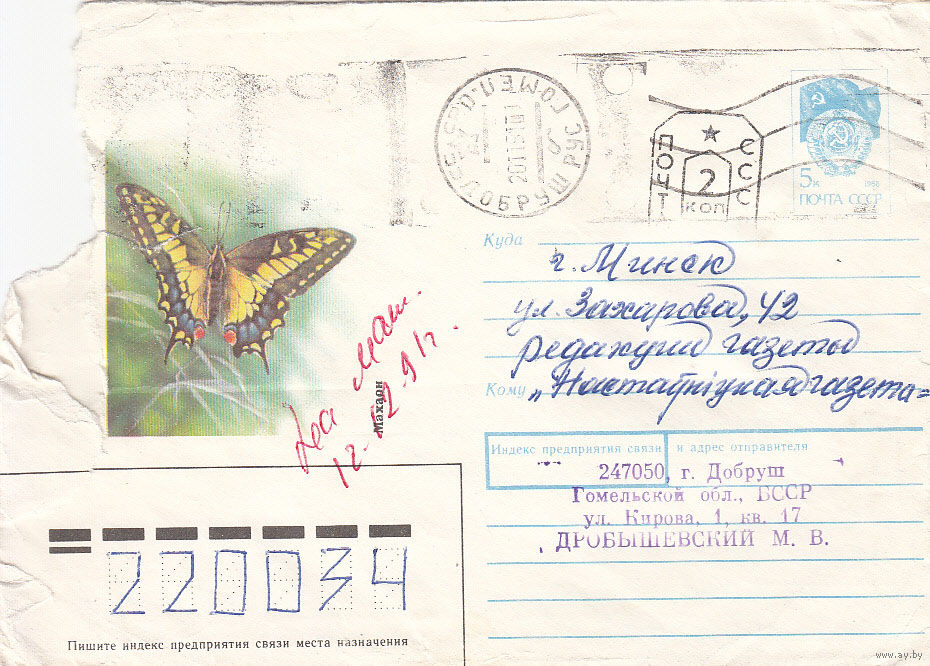 ПОЧТ
СССР
2
КОП
5к
1988
ПОЧТА СССР
ДОБРУШ
Куда
г. Минск
ул. Захарова, 42
редакции газеты
Кому
„Настаўніцкая газета"
Махаон
12.91г.
Индекс предприятия связи и адрес отправителя
247050, г. Добруш
Гомельской обл., БССР
ул. Кирова, 1, кв. 17
ДРОБЫШЕВСКИЙ М. В.
220034
Пишите индекс предприятия связи места назначения
www.ay.by